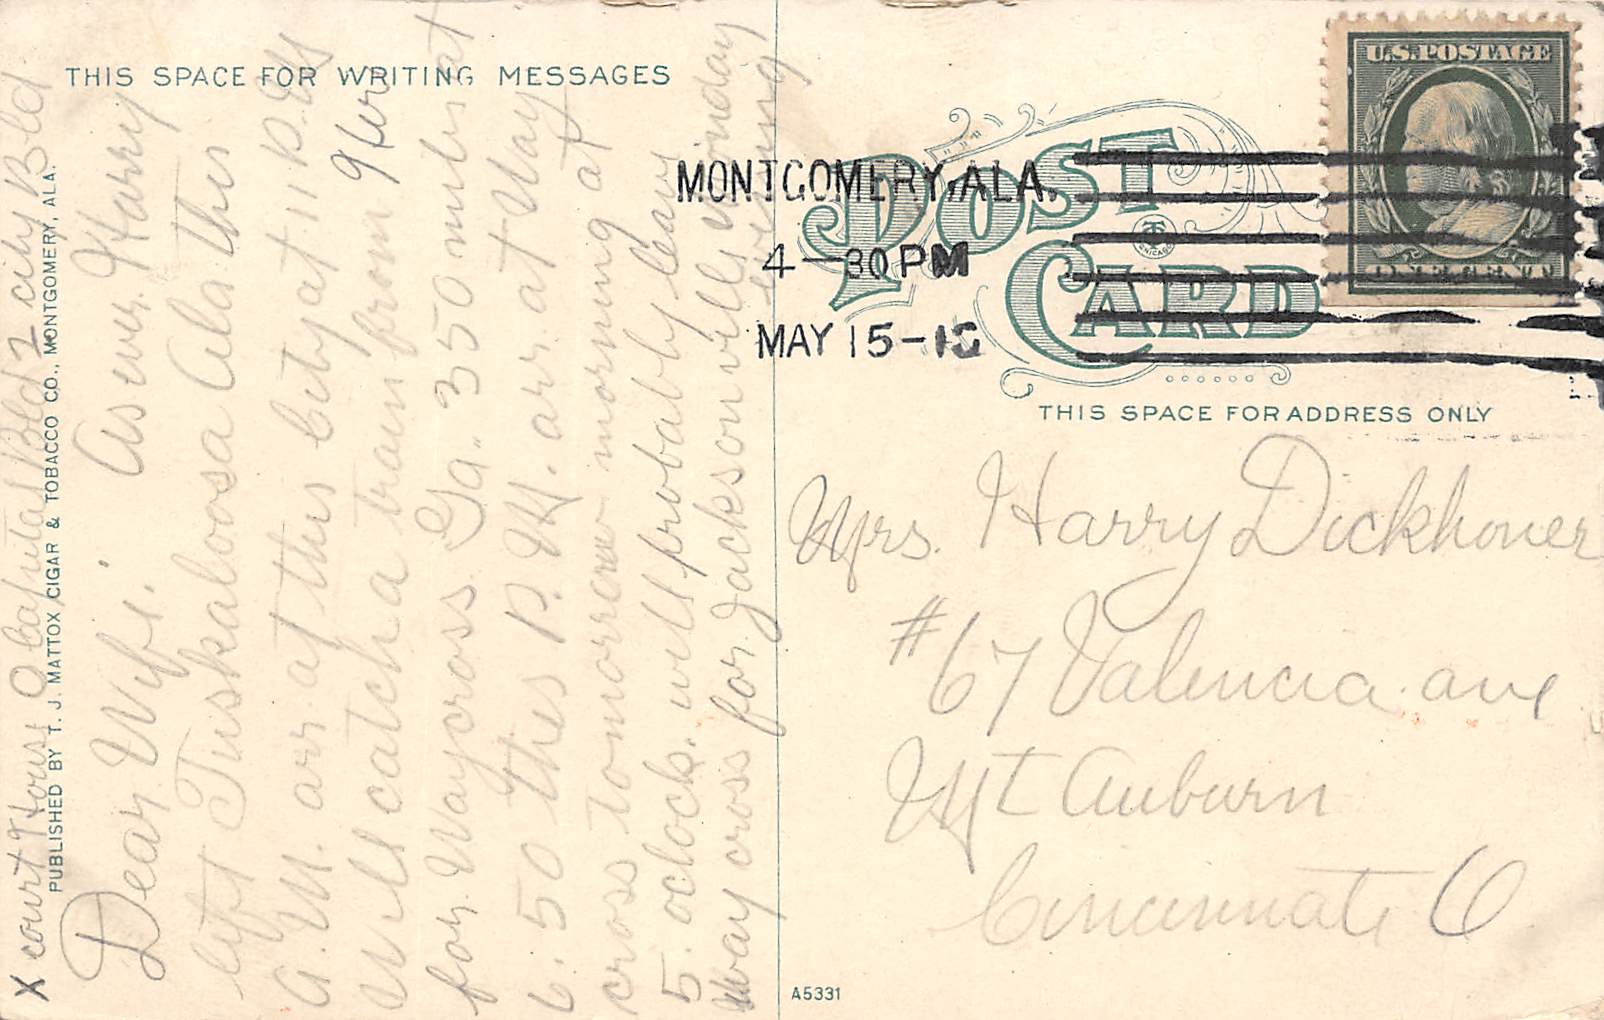 THIS SPACE FOR WRITING MESSAGES
X court House O Capital Bld 2 city Bld
PUBLISHED BY T. J. MATTOX CIGAR & TOBACCO CO., MONTGOMERY, ALA.
Dear Wife. As ever Harry
left Tuskaloosa Ala this
A.M. arr at this city at 11 P.M
will catch a train from here
for Waycross Ga. 350 miles at
6.50 this P.M. arr at Way
cross tomorrow morning at
5. oclock. will probably leave
Way cross for Jacksonville Monday
evening
MONTGOMERY, ALA.
4-30 PM
MAY 15-
U.S. POSTAGE
ONE CENT
POST
CARD
CHICAGO
THIS SPACE FOR ADDRESS ONLY
Mrs. Harry Dickhoner
#67 Valencia ave
Mt Auburn
Cincinnati O
A5331